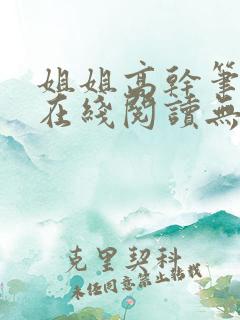 姐姐高幹筆
在綫閱讀無
克里契科
未經同意禁止轉載